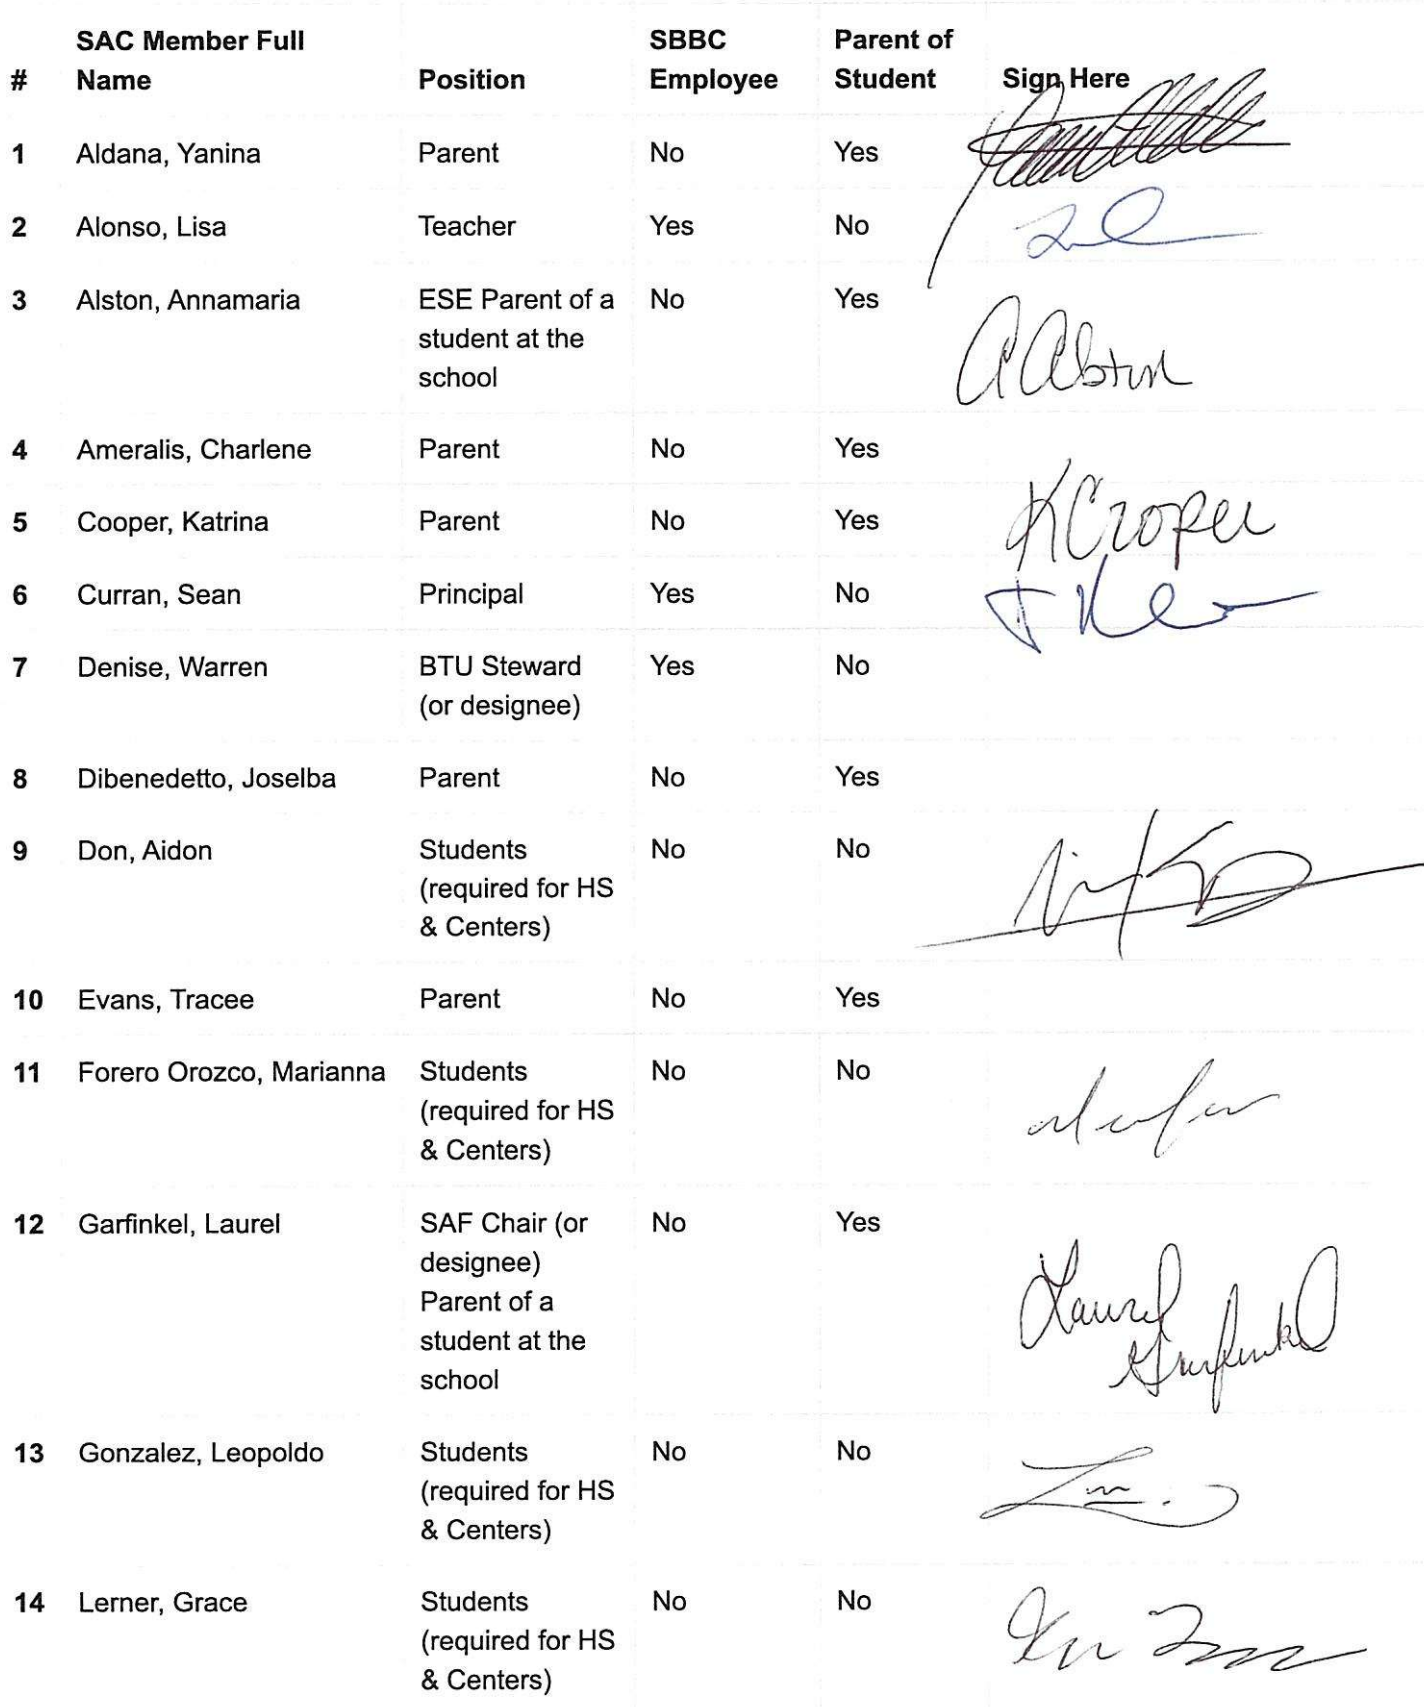 # SAC Member Full Name Position SBBC Employee Parent of Student Sign Here
1 Aldana, Yanina Parent No Yes
2 Alonso, Lisa Teacher Yes No
3 Alston, Annamaria ESE Parent of a No Yes
student at the
school
A Alston
4 Ameralis, Charlene Parent No Yes
5 Cooper, Katrina Parent No Yes K Cooper
6 Curran, Sean Principal Yes No
7 Denise, Warren BTU Steward Yes No
(or designee)
8 Dibenedetto, Joselba Parent No Yes
9 Don, Aidon Students No No
(required for HS
& Centers)
10 Evans, Tracee Parent No Yes
11 Forero Orozco, Marianna Students No No
(required for HS
& Centers)
12 Garfinkel, Laurel SAF Chair (or No Yes
designee)
Parent of a
student at the
school
Laurel
Garfinkel
13 Gonzalez, Leopoldo Students No No
(required for HS
& Centers)
14 Lerner, Grace Students No No
(required for HS
& Centers)